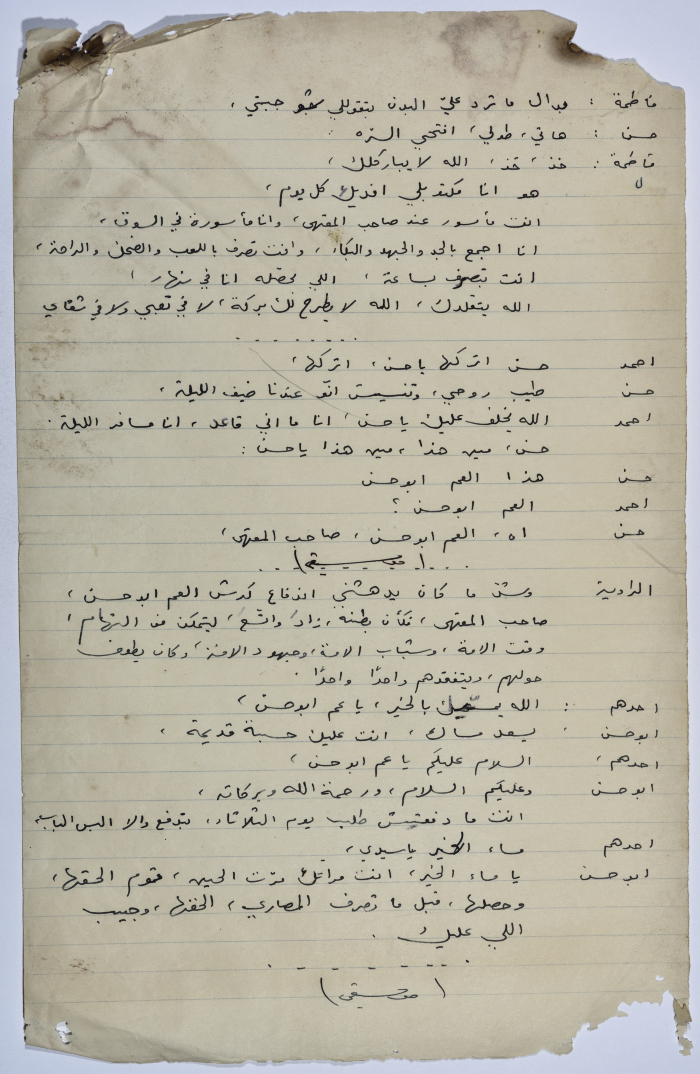 فاطمة : بدال ما ترد عليّ البدن بتقوللي شو جبتي ،
حسن : هاتي ، طولي ، افتحي السره
فاطمة : خذ ، خذ ، الله لا يباركلك ،
هو انا مكتوبلي افديك كل يوم ،
انت مأسور عند صاحب المقهى ، وانا مأسورة في السوق ،
انا اجمع بالجد والجهد والبكاء ، وانت تصرف باللعب والضحك والراحة ،
انت بتصرف بساعة ، اللي بحصله انا في نهار ،
الله يتقلدك ، الله لا يطرح لك بركة ، لا في تعبي ولا في شقاي
. . . . . . . . .
احمد حسن اتركها يا حسن ، اتركها ،
حسن طيب روحي ، وتنسيش انّو عندنا ضيف الليلة ،
احمد الله يخلف عليك يا حسن ، انا ماني قاعد ، انا مسافر الليلة .
حسن ، مين هذا ، مين هذا يا حسن :
حسن هذا العم ابو حسن
احمد العم ابو حسن ؟
حسن اه ، العم ابو حسن ، صاحب المقهى ،
. . . ( موسيقى ) . . .
الراوية وشد ما كان يدهشني اندفاع كرش العم ابو حسن ،
صاحب المقهى ، فكأن بطنه ، زاد واتسع ، ليتمكن من التهام ،
وقت الامة ، وشباب الامة ، وجهود الامة ، وكان يطوف
حولهم ، ويتفقدهم واحدًا واحدًا .
احدهم : الله يمسيك بالخير ، يا عم ابو حسن ،
ابو حسن : يسعد مساك ، انت عليك حسبة قديمة ،
احدهم ، السلام عليكم يا عم ابو حسن ،
ابو حسن وعليكم السلام ، ورحمة الله وبركاته ،
انت ما دفعتش طلب يوم الثلاثاء ، بتدفع والا
احدهم مساء الخير يا سيدي ،
ابو حسن يا مساء الخير ، انت مراتك مرّت الحين ، قوم الحقها ،
وحصلها ، قبل ما تصرف المصاري ، الحقها ، وجيب
اللي عليك .
. . . . . . . . .
( موسيقى )